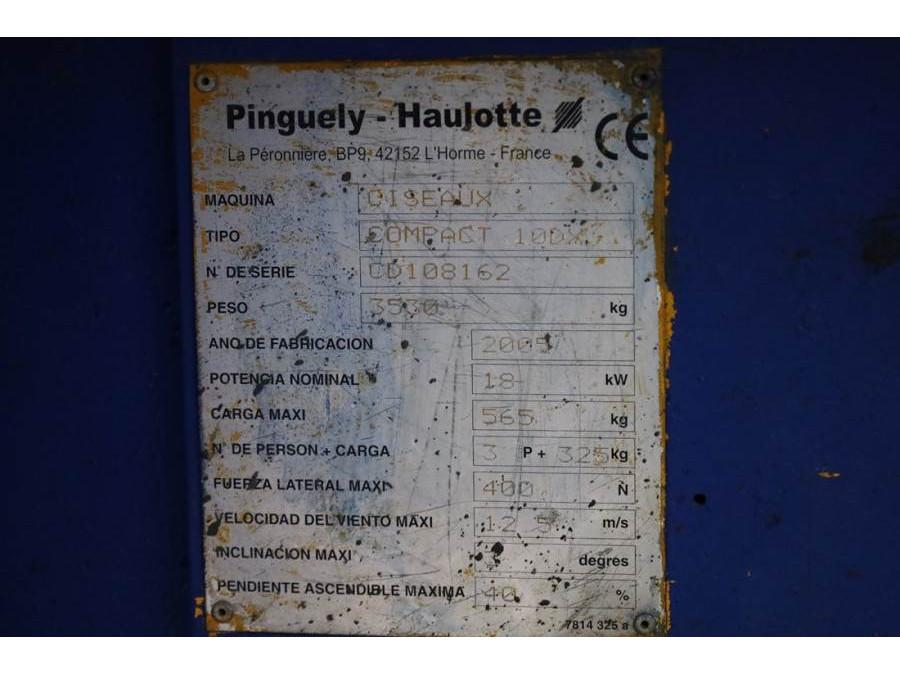 Pinguely - Haulotte
CE
La Péronnière, BP9, 42152 L'Horme - France
MAQUINA CISEAUX
TIPO COMPACT 10DX
N° DE SERIE CD108162
PESO 3530 kg
ANO DE FABRICACION 2005
POTENCIA NOMINAL 18 kW
CARGA MAXI 565 kg
N° DE PERSON + CARGA 3 P + 325 kg
FUERZA LATERAL MAXI 400 N
VELOCIDAD DEL VIENTO MAXI 12 5 m/s
INCLINACION MAXI degres
PENDIENTE ASCENDIBLE MAXIMA 40 %
7814 325 a